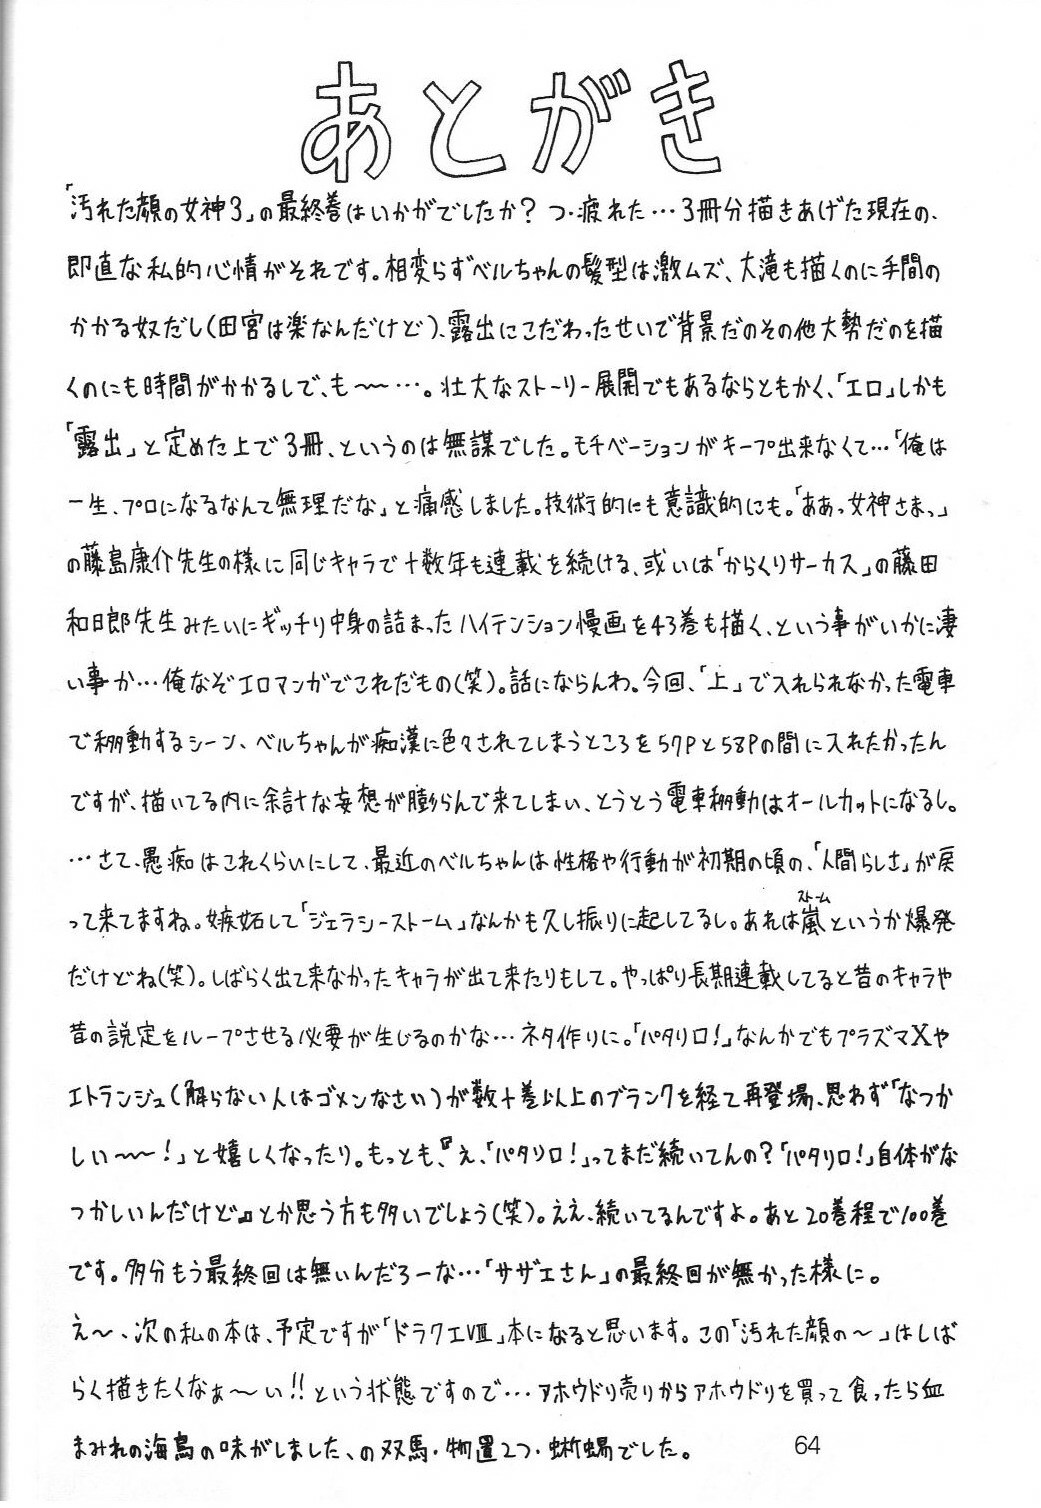 あとがき
『汚れた顔の女神3」の最終巻はいかがでしたか? つ・疲れた…3冊分描きあげた現在の、
即直な私的心情がそれです。相変らずベルちゃんの髪型は激ムズ、大滝も描くのに手間の
かかる奴だし(田宮は楽なんだけど)、露出にこだわったせいで背景だのその他大勢だのを描
くのにも時間がかかるしで、も〜〜…。壮大なストーリー展開でもあるならともかく、「エロ」しかも
「露出」と定めた上で3冊、というのは無謀でした。モチベーションがキープ出来なくて…「俺は
一生、プロになるなんて無理だな」と痛感しました。技術的にも意識的にも。「ああっ女神さまっ」
の藤島康介先生の様に同じキャラで十数年も連載を続ける、或いは「からくりサーカス」の藤田
和日郎先生みたいにギッチリ中身の詰まったハイテンション漫画を43巻も描く、という事がいかに凄
い事か…俺なぞエロマンガでこれだもの(笑)。話にならんわ。今回、「上」で入れられなかった電車
で移動するシーン、ベルちゃんが痴漢に色々されてしまうところを57Pと58Pの間に入れたかったん
ですが、描いてる内に余計な妄想が膨らんで来てしまい、とうとう電車移動はオールカットになるし。
…さて、愚痴はこれくらいにして、最近のベルちゃんは性格や行動が初期の頃の、「人間らしさ」が戻
って来てますね。嫉妬して「ジェラシーストーム」なんかも久し振りに起してるし。あれは嵐というか爆発
ストーム
だけどね(笑)。しばらく出て来なかったキャラが出て来たりもして。やっぱり長期連載してると昔のキャラや
昔の説定をループさせる必要が生じるのかな…ネタ作りに。「パタリロ!」なんかでもプラズマXや
エトランジュ(解らない人はゴメンなさい)が数十巻以上のブランクを経て再登場、思わず「なつか
しい〜〜!」と嬉しくなったり。もっとも、『え、「パタリロ!」ってまだ続いてんの?「パタリロ!」自体がな
つかしいんだけど』とか思う方も多いでしょう(笑)。ええ、続いてるんですよ。あと20巻程で100巻
です。多分もう最終回は無いんだろーな…「サザエさん」の最終回が無かった様に。
え〜、次の私の本は、予定ですが「ドラクエⅧ」本になると思います。この「汚れた顔の〜」はしば
らく描きたくなぁ〜い!!という状態ですので…アホウドリ売りからアホウドリを買って食ったら血
まみれの海鳥の味がしました、の双馬・物置2つ・蜥蜴でした。
64